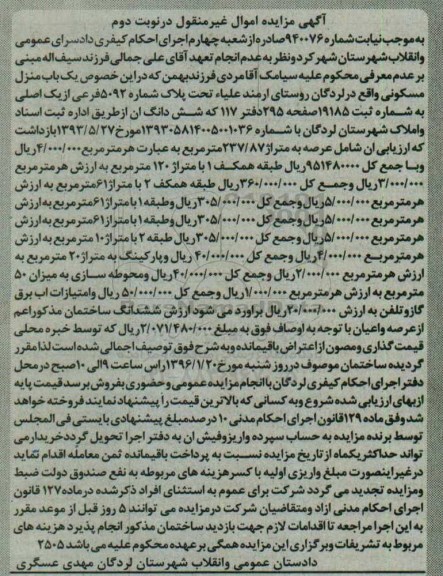 آگهی مزایده اموال غیرمنقول درنوبت دوم
به موجب نیابت شماره ۹۴۰۰۷۶ صادره از شعبه چهارم اجرای احکام کیفری دادسرای عمومی
وانقلاب شهرستان شهرکرد ونظر به عدم انجام تعهد آقای علی جمالی فرزند سیف اله مبنی
بر عدم معرفی محکوم علیه سیامک آقا مردی فرزند بهمن که دراین خصوص یک باب منزل
مسکونی واقع در لردگان روستای ارمند علیاء تحت پلاک شماره ۵۰۹۲ فرعی از یک اصلی
به شماره ثبت ۱۹۱۸۵ صفحه ۲۹۵ دفتر ۱۱۷ که شش دانگ آن از طریق اداره ثبت اسناد
واملاک شهرستان لردگان با شماره ۱۳۹۳۰۵۸۱۴۰۰۵۰۰۱۰۳۶ مورخ ۱۳۹۳/۵/۲۷ بازداشت
که ارزیابی آن شامل عرصه به متراژ ۲۳۷/۸۷ مترمربع به عبارت هر مترمربع ۴/۰۰۰/۰۰۰ ریال
وبا جمع کل ۹۵۱۴۸۰۰۰۰ ریال طبقه همکف ۱ با متراژ ۱۲۰ مترمربع به ارزش هر مترمربع
۳/۰۰۰/۰۰۰ ریال وجمع کل ۳۶۰/۰۰۰/۰۰۰ ریال طبقه همکف ۲ با متراژ ۶۱ مترمربع به ارزش
هر مترمربع ۵/۰۰۰/۰۰۰ ریال وجمع کل ۳۰۵/۰۰۰/۰۰۰ ریال وطبقه ۱ با متراژ ۶۱ مترمربع به ارزش
هر مترمربع ۵/۰۰۰/۰۰۰ ریال وجمع کل ۳۰۵/۰۰۰/۰۰۰ ریال وطبقه ۱ با متراژ ۶۱ مترمربع به ارزش
هر مترمربع ۵/۰۰۰/۰۰۰ ریال وجمع کل ۳۰۵/۰۰۰/۰۰۰ ریال طبقه ۲ با متراژ ۱۰ مترمربع به ارزش
هر مترمربع ۴/۰۰۰/۰۰۰ ریال وجمع کل ۴۰/۰۰۰/۰۰۰ ریال وپارکینگ به متراژ ۲۰ مترمربع به
ارزش هر مترمربع ۲/۰۰۰/۰۰۰ ریال وجمع کل ۴۰/۰۰۰/۰۰۰ ریال ومحوطه سازی به میزان ۵۰
مترمربع به ارزش هر مترمربع ۱/۰۰۰/۰۰۰ ریال وجمع کل ۵۰/۰۰۰/۰۰۰ ریال وامتیازات آب برق
گاز وتلفن به ارزش ۲۰/۰۰۰/۰۰۰ ریال برآورد می شود ارزش ششدانگ ساختمان مذکور اعم
از عرصه واعیان با توجه به اوصاف فوق به مبلغ ۲/۰۷۱/۴۸۰/۰۰۰ ریال که توسط خبره محلی
قیمت گذاری ومصون از اعتراض باقیمانده وبه شرح فوق توصیف اجمالی شده است لذا مقرر
گردیده ساختمان موصوف در روز شنبه مورخ ۱۳۹۶/۱/۲۰ راس ساعت ۹ الی ۱۰ صبح در محل
دفتر اجرای احکام کیفری لردگان با انجام مزایده عمومی وحضوری بفروش برسد قیمت پایه
از بهای ارزیابی شده شروع وبه کسانی که بالاترین قیمت را پیشنهاد نمایند فروخته خواهد
شد وفق ماده ۱۲۹ قانون اجرای احکام مدنی ۱۰ درصد مبلغ پیشنهادی بایستی فی المجلس
توسط برنده مزایده به حساب سپرده واریز وفیش آن به دفتر اجرا تحویل گردد خریدار می
تواند حداکثر یکماه از تاریخ مزایده نسبت به پرداخت باقیمانده ثمن معامله اقدام نماید
در غیر اینصورت مبلغ واریزی اولیه با کسر هزینه های مربوطه به نفع صندوق دولت ضبط
ومزایده تجدید می گردد شرکت برای عموم به استثنای افراد ذکر شده در ماده ۱۲۷ قانون
اجرای احکام مدنی آزاد ومتقاضیان شرکت در مزایده می توانند ۵ روز قبل از موعد مقرر
به این اجرا مراجعه تا اقدامات لازم جهت بازدید ساختمان مذکور انجام پذیرد هزینه های
مربوط به تشریفات وبرگزاری این مزایده همگی بر عهده محکوم علیه می باشد ۲۵۰۵
دادستان عمومی وانقلاب شهرستان لردگان مهدی عسگری